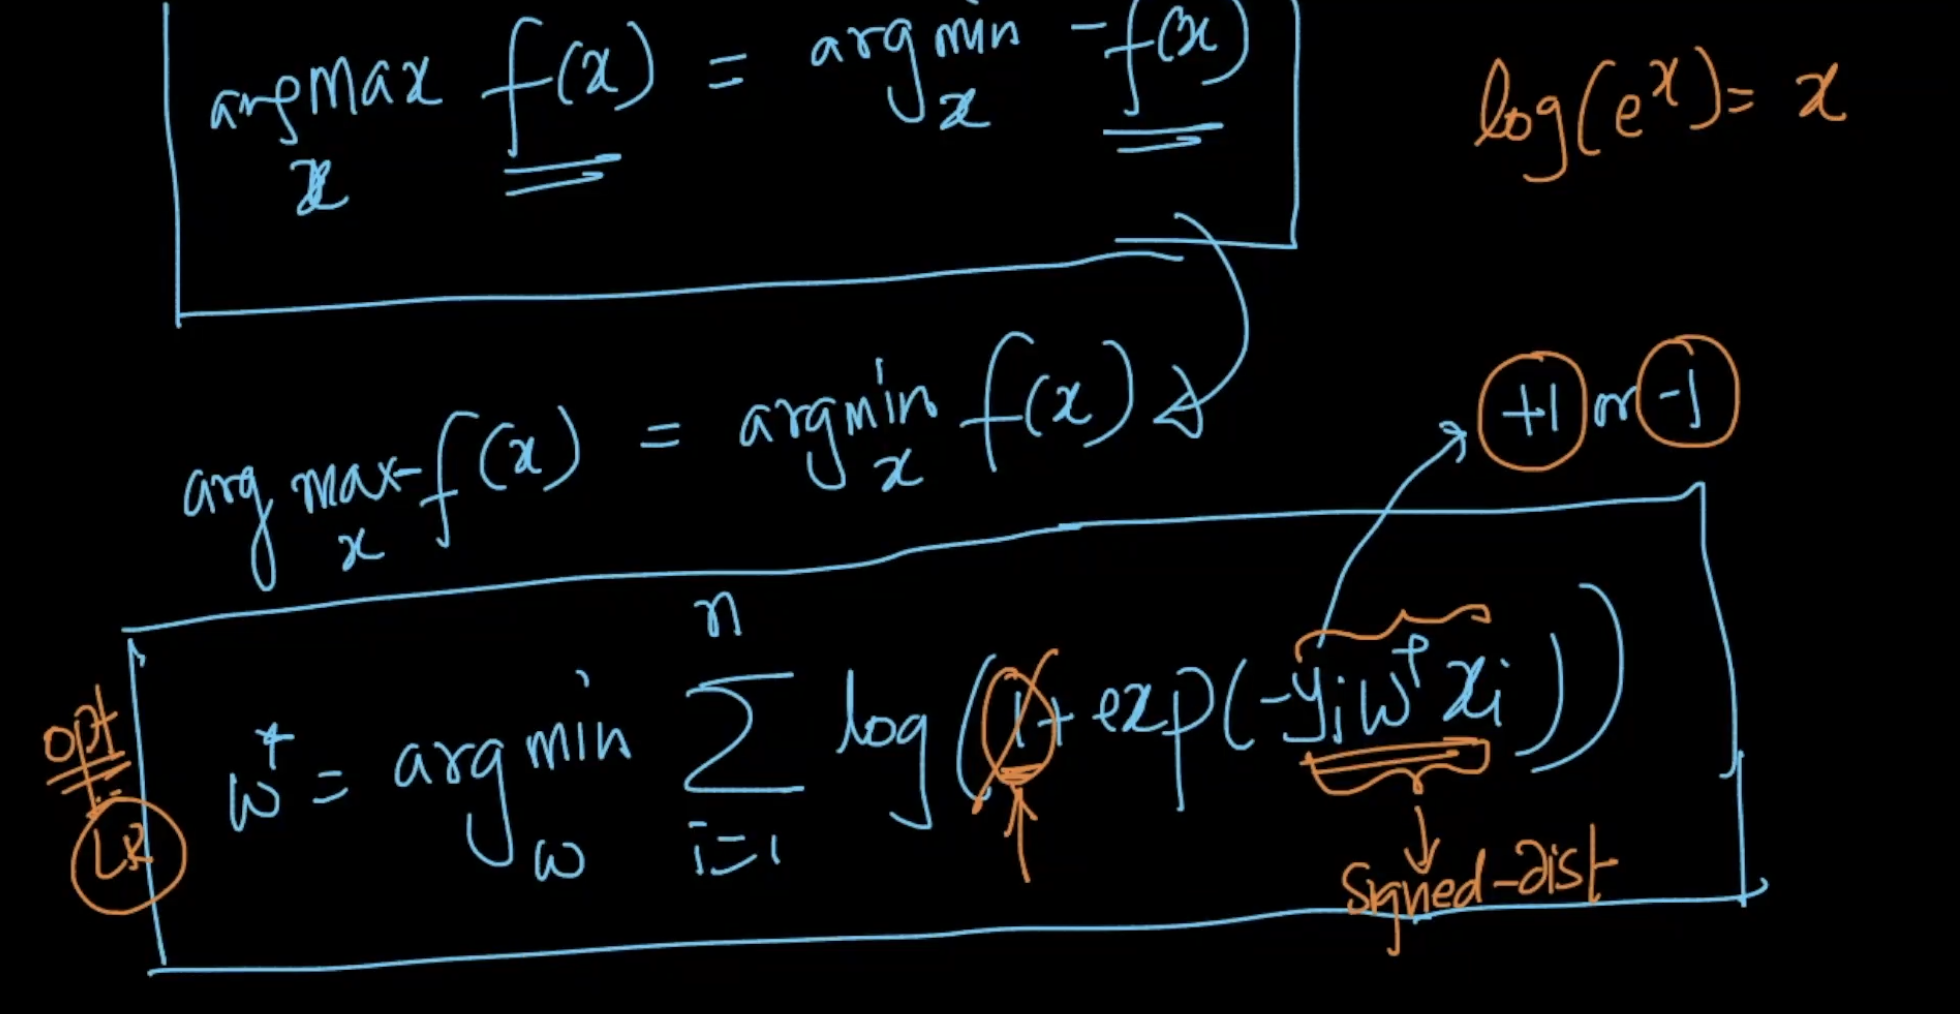 argmax f(x) = argmin -f(x)
x x
log(e^x) = x
arg max -f(x) = argmin f(x)
x x
+1 or -1
opt
LR
w* = argmin_w ∑_{i=1}^{n} log(1 + exp(-y_i w^T x_i))
signed-dist